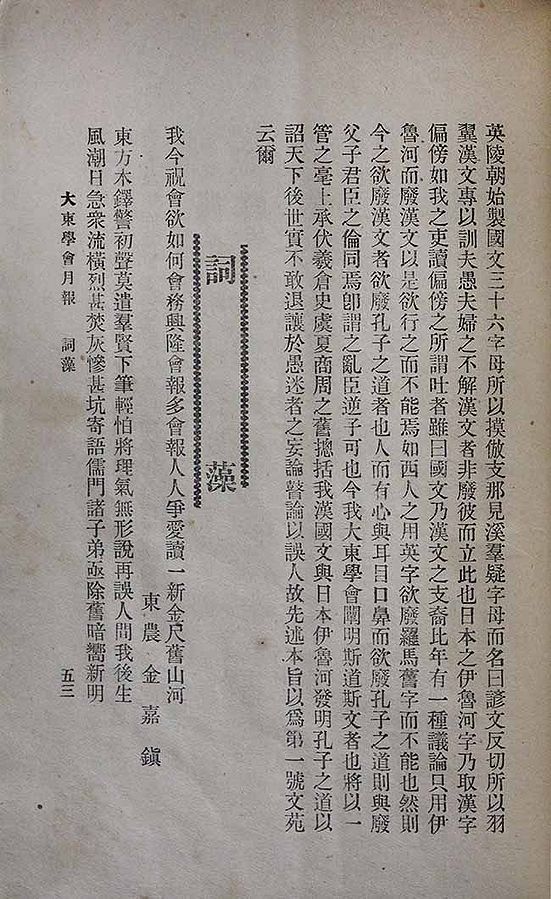 英陵朝始製國文三十六字母所以摸倣支那見溪羣疑字母而名曰諺文反切所以羽
翼漢文專以訓夫愚夫婦之不解漢文者非廢彼而立此也日本之伊魯河字乃取漢字
偏傍如我之吏讀偏傍之所謂吐者雖曰國文乃漢文之支裔比年有一種議論只用伊
魯河而廢漢文以是欲行之而不能焉如西人之用英字欲廢羅馬舊字而不能也然則
今之欲廢漢文者欲廢孔子之道者也人而有心與耳目口鼻而欲廢孔子之道則與廢
父子君臣之倫同焉卽謂之亂臣逆子可也今我大東學會闡明斯道斯文者也將以一
管之毫上承伏羲倉史虞夏商周之舊摠括我漢國文與日本伊魯河發明孔子之道以
詔天下後世實不敢退讓於愚迷者之妄論瞽論以誤人故先述本旨以爲第一號文苑
云爾
詞藻
東農金嘉鎭
我今祝會欲如何會務興隆會報多會報人人爭愛讀一新金尺舊山河
東方木鐸警初聲莫遣羣賢下筆輕怕將理氣無形說再誤人間我後生
風潮日急衆流橫烈甚焚灰慘甚坑寄語儒門諸子弟亟除舊暗嚮新明
大東學會月報 詞藻 五三